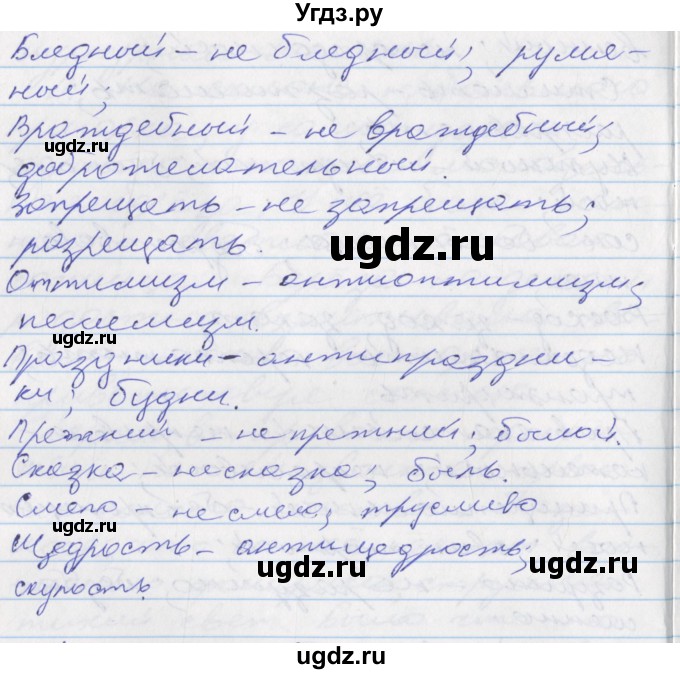 Угдз.ру
Бледный – не бледный; румя-
ный;
Враждебный – не враждебный;
доброжелательный.
Запрещать – не запрещать;
разрещать.
Оптимизм – антиоптимизм;
песисмизм.
Праздники – антипраздни-
ки; будни.
Прежний – непрежний; былой.
Сказка – несказка; быль.
Смело – несмело; трусливо
Щедрость – антищедрость;
скупость.
ugdz.ru
ugdz.ru
ugdz.ru
ugdz.ru
ugdz.ru
ugdz.ru
ugdz.ru
ugdz.ru
ugdz.ru
ugdz.ru
ugdz.ru